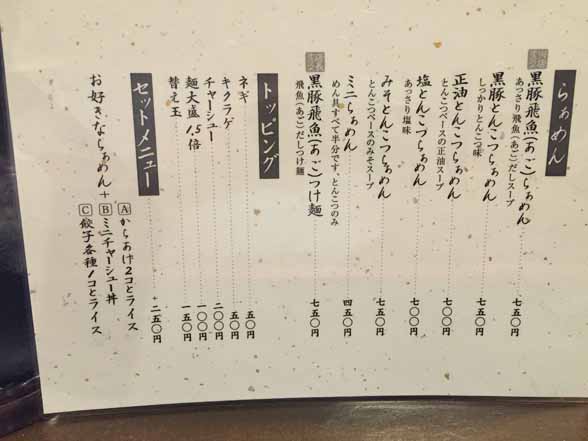 らぁめん
黒豚飛魚(あご)らぁめん 七五〇円
あっさり飛魚(あご)だしスープ
黒豚とんこつらぁめん 七五〇円
しっかりとんこつ味
正油とんこつらぁめん 七〇〇円
とんこつベースの正油スープ
塩とんこつらぁめん 七〇〇円
あっさり塩味
みそとんこつらぁめん 七五〇円
とんこつベースのみそスープ
ミニらぁめん 四五〇円
めん具すべて半分です、とんこつのみ
黒豚飛魚(あご)つけ麺 七五〇円
飛魚(あご)だしつけ麺
トッピング
ネギ 五〇円
キクラゲ 五〇円
チャーシュー 二〇〇円
麺大盛1.5倍 一〇〇円
替え玉 一五〇円
セットメニュー +二五〇円
お好きならぁめん+
Aからあげ2コとライス
Bミニチャーシュー丼
C餃子各種1コとライス